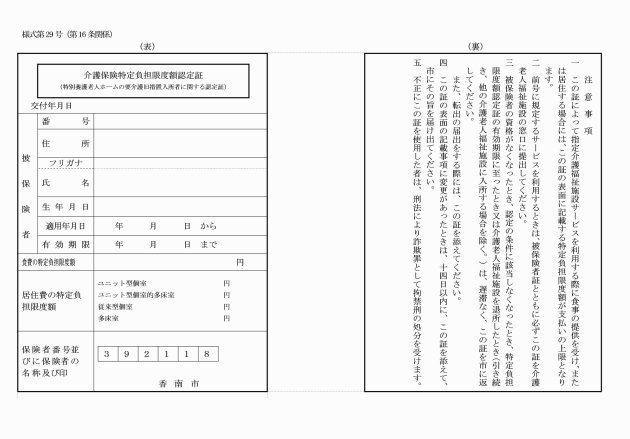 様式第29号（第16条関係）
（表）
介護保険特定負担限度額認定証
（特別養護老人ホームの要介護旧措置入所者に関する認定証）
交付年月日
被保険者
番号
住所
フリガナ
氏名
生年月日
適用年月日　年　月　日　から
有効期限　年　月　日　まで
食費の特定負担限度額　円
居住費の特定負
担限度額
ユニット型個室　円
ユニット型個室的多床室　円
従来型個室　円
多床室　円
保険者番号並
びに保険者の
名称及び印
392118
香南市
（裏）
注意事項
一　この証によって指定介護福祉施設サービスを利用する際に食事の提供を受け、また
は居住する場合には、この証の表面に記載する特定負担限度額が支払いの上限となり
ます。
二　前号に規定するサービスを利用するときは、被保険者証とともに必ずこの証を介護
老人福祉施設の窓口に提出してください。
三　被保険者の資格がなくなったとき、認定の条件に該当しなくなったとき、特定負担
限度額認定証の有効期限に至ったとき又は介護老人福祉施設を退所したとき（引き続
き、他の介護老人福祉施設に入所する場合を除く。）は、遅滞なく、この証を市に返
してください。
また、転出の届出をする際には、この証を添えてください。
四　この証の表面の記載事項に変更があったときは、十四日以内に、この証を添えて、
市にその旨を届け出てください。
五　不正にこの証を使用した者は、刑法により詐欺罪として拘禁刑の処分を受けます。